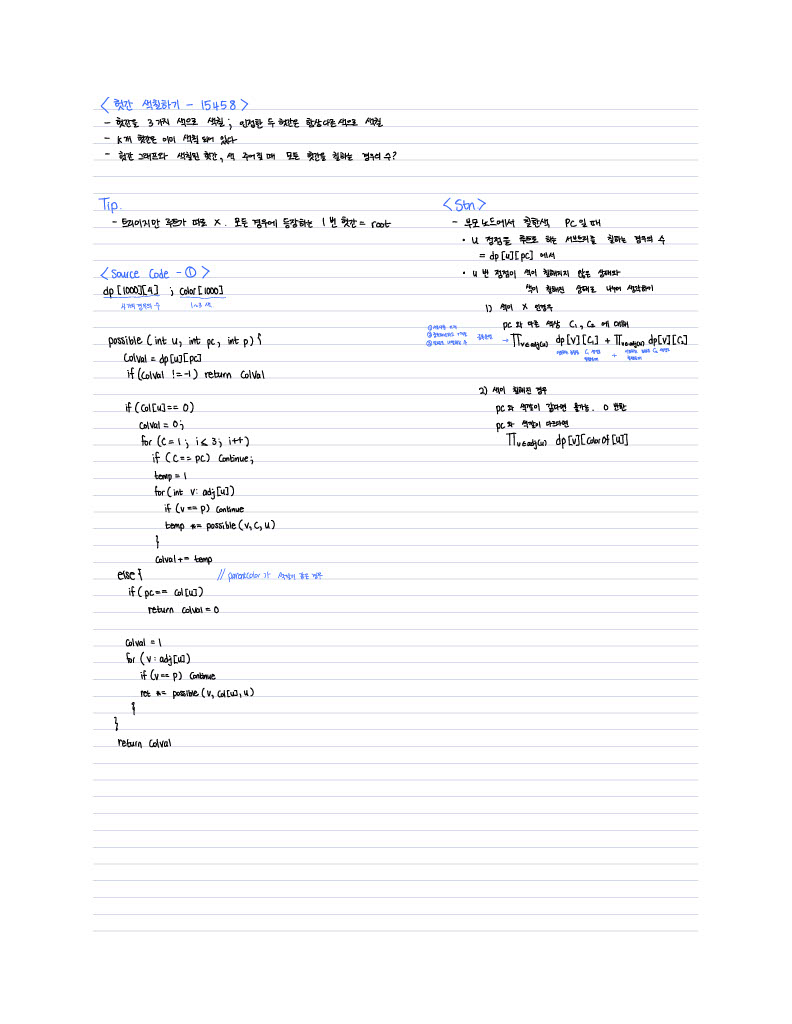 <헛간 색칠하기 - 15458>
- 헛간을 3가지 색으로 색칠; 인접한 두 헛간은 항상 다른 색으로 색칠
- K개 헛간은 이미 색칠 되어 있다
- 헛간 그래프와 색칠된 헛간, 색 주어질 때 모든 헛간을 칠하는 경우의 수?
Tip.
- 트리이지만 루트가 따로 X. 모든 경우에 등장하는 1번 헛간 = root
<Source Code - ①>
dp[1000][4] ; color[1000]
4가지 경우의 수 1~3 색
possible(int u, int pc, int p){
Colval = dp[u][pc]
if(Colval != -1) return Colval
if(Col[u] == 0)
Colval = 0;
for(C=1; i≤3; i++)
if (C == pc) Continue;
temp = 1
for(int v: adj[u])
if (v == p) Continue
temp *= possible(v, C, u)
}
Colval += temp
else{ // parentColor가 색깔이 같은 경우
if(pc == Col[u])
return Colval = 0
Colval = 1
for(v: adj[u])
if(v == p) Continue
ret *= possible(v, Col[u], u)
{
}
return Colval
<Stn>
- 부모노드에서 칠한색 pc일 때
• u 정점을 루트로 하는 서브트리를 칠하는 경우의 수
= dp[u][pc] 에서
• u번 정점이 색이 칠해지지 않은 상태와
색이 칠해진 상태로 나누어 생각하여
1) 색이 X 인경우
pc와 다른 색상 C₁, C₂ 에 대해
→ ∏v∈adj(u) dp[v][C₁] + ∏v∈adj(u) dp[v][C₂]
2) 색이 칠해진 경우
pc와 색깔이 같다면 불가능. 0 반환
pc와 색깔이 다르다면
∏v∈adj(u) dp[v][ColorOf[u]]